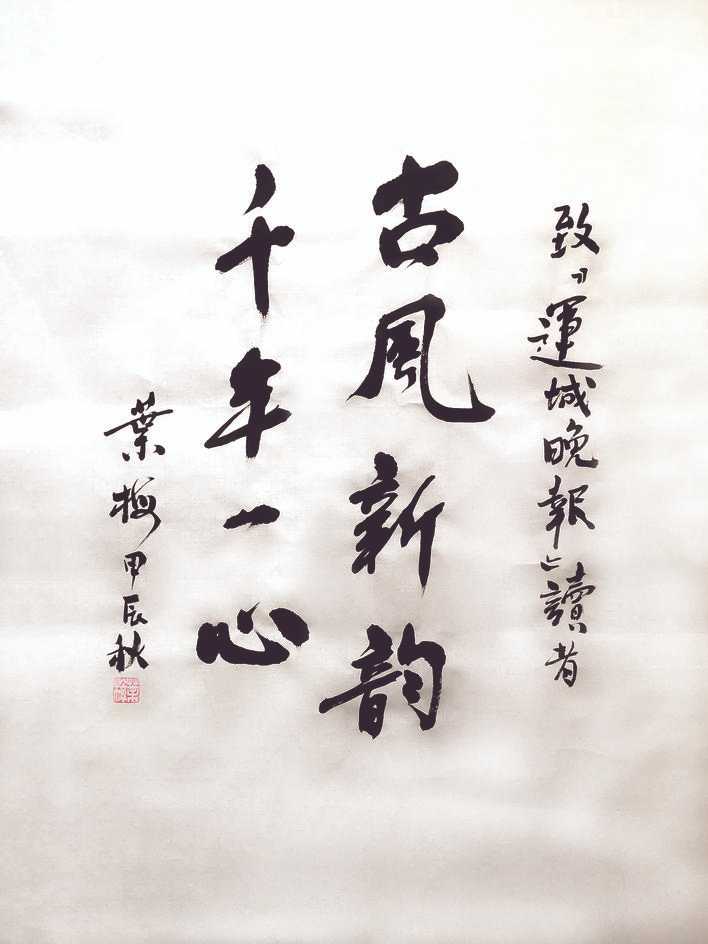 致《運城晚報》讀者
古風新韵
千年一心
葉梅甲辰秋